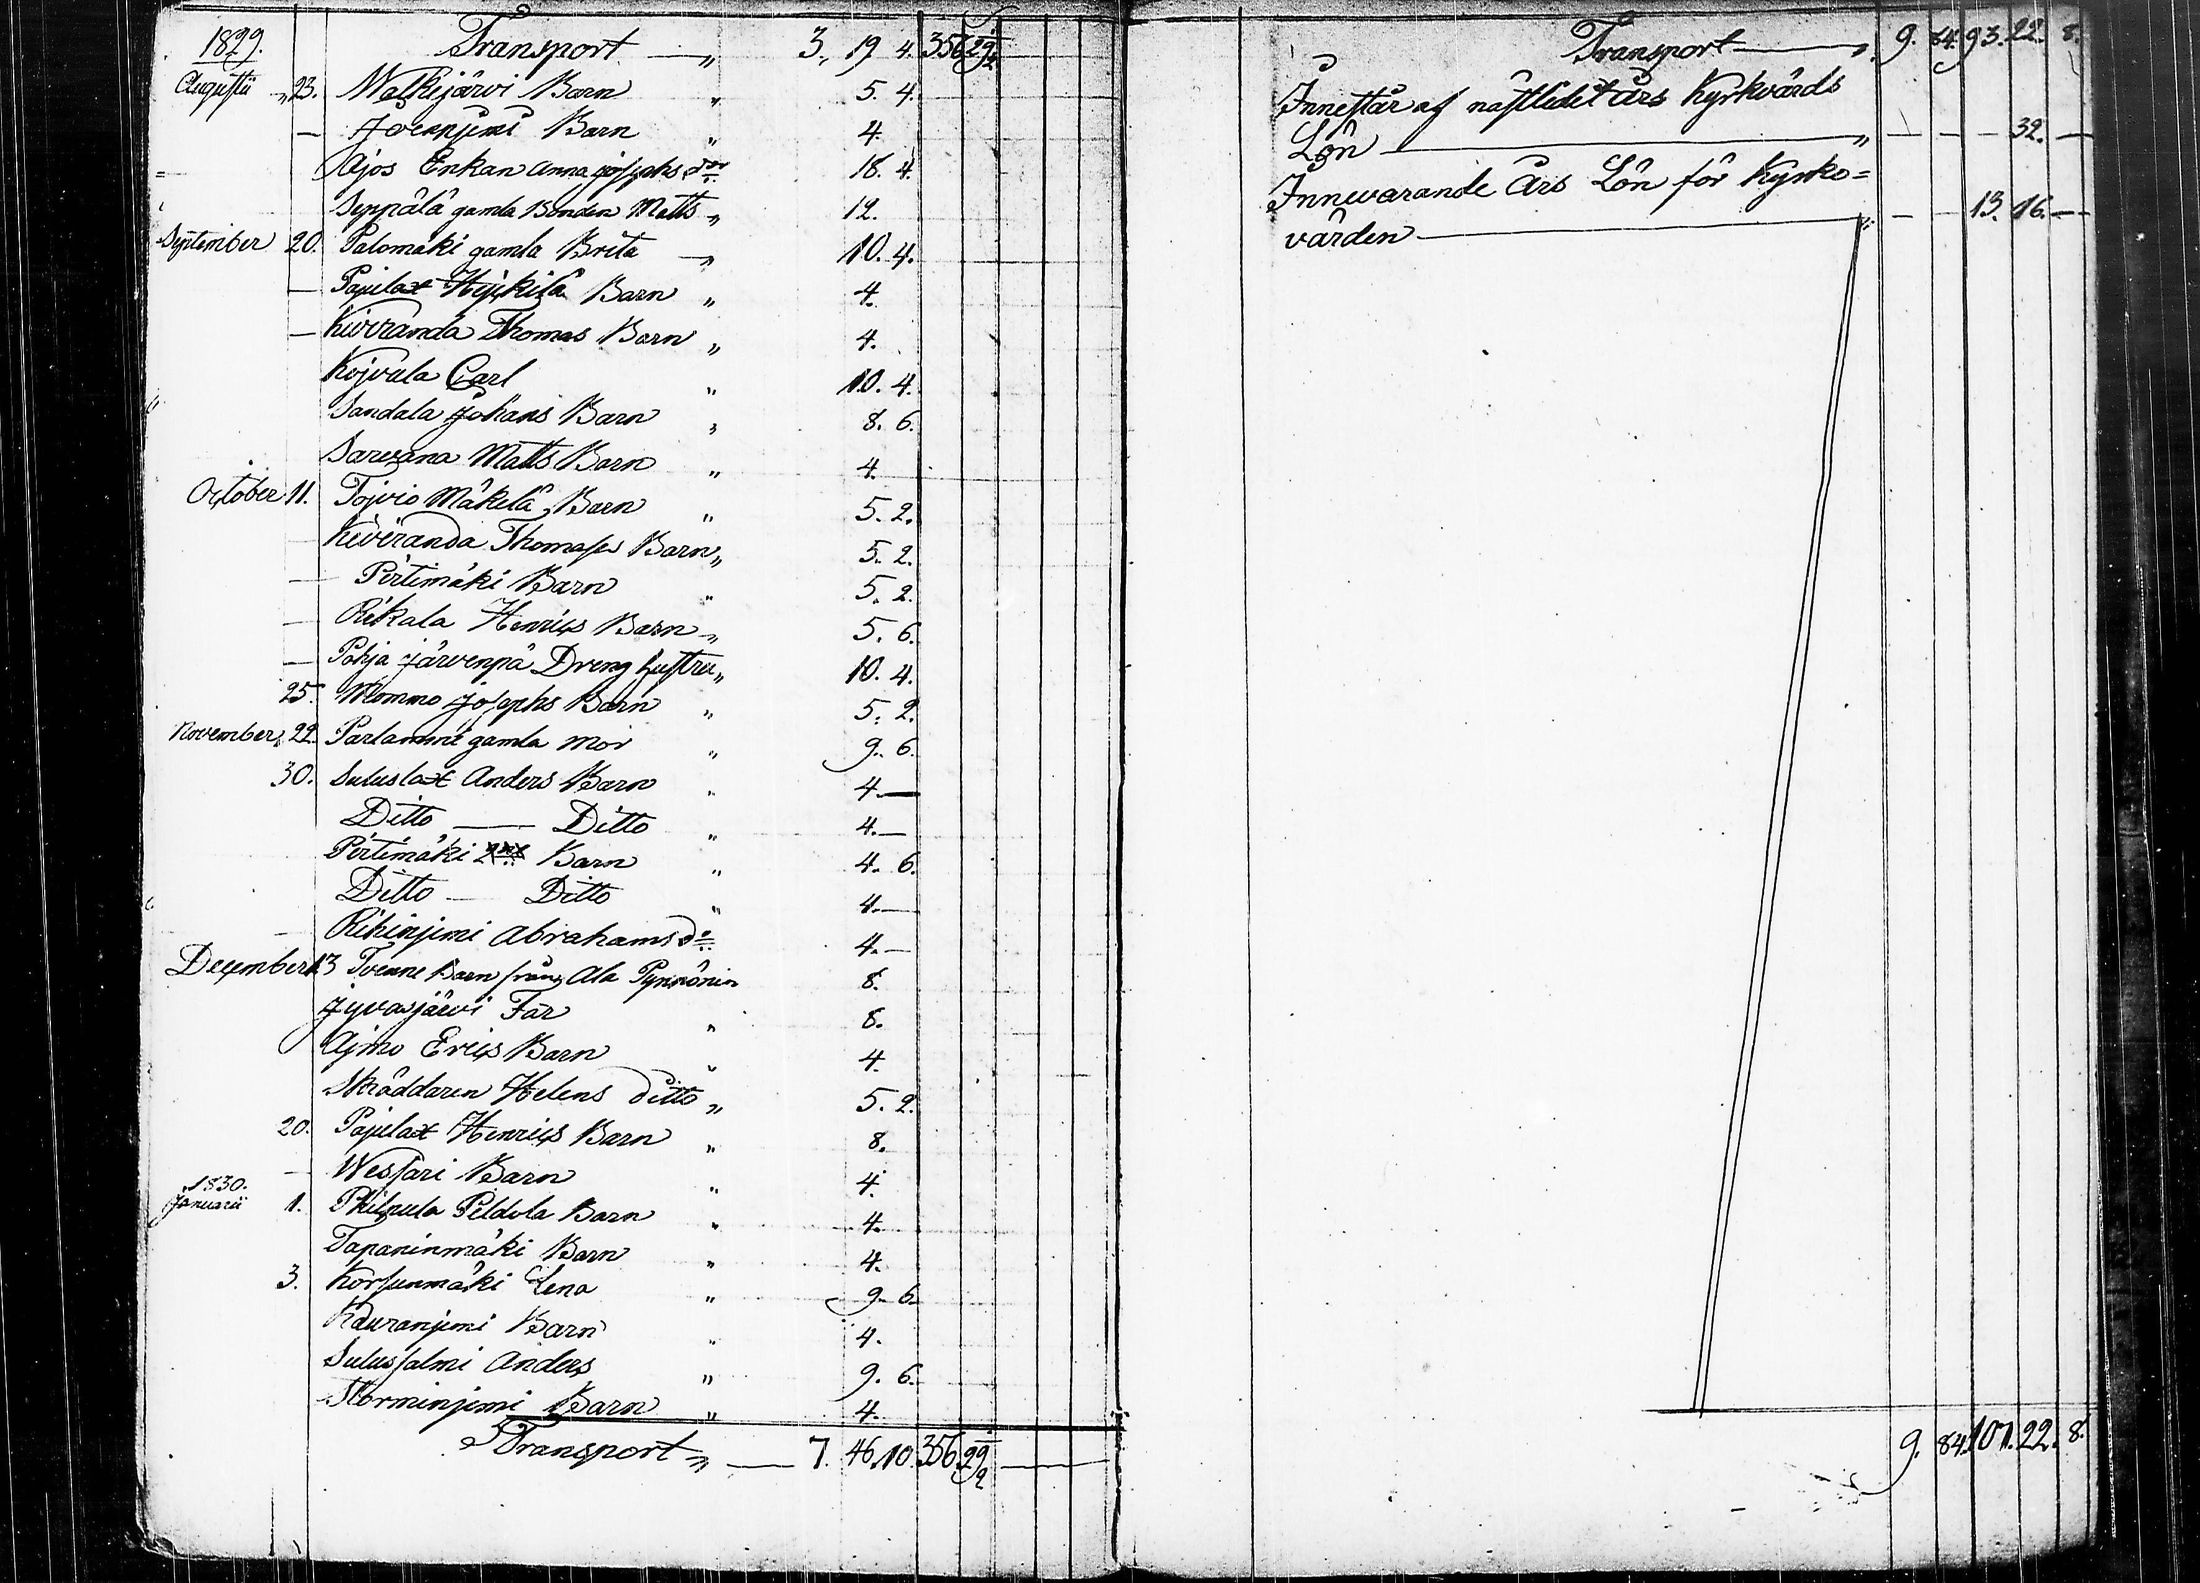 1829. Transport — " 3. 19 4. 356 29 1/2
Augusti " 23. Walkijärvi Barn " 5. 4.
— Joennjemi Barn " 4.
Ajos Enkan Anna Josephs dr 18. 4.
Seppälä gamla Bonden Matts " 12.
September 20. Palomäki gamla Brita — " 10. 4.
— Pajulax Hejkilä Barn " 4.
— Kiviranda Thomas Barn " 4.
Kojvula Carl " 10. 4.
Sandala Johans Barn " 8. 6.
Sarvana Matts Barn " 4.
October 11. Tojvio Mäkelä Barn " 5. 2.
Kiviranda Thomases Barn " 5. 2.
— Pirtimäki Barn " 5. 2.
— Rikala Henrics Barn " 5. 6.
— Pohja järvenpä Dreng hustru " 10. 4.
25. Mommo Josephs Barn " 5. 2.
November 22. Parlamini gamla mor " 9. 6.
30. Suluslax Anders Barn " 4. —
Ditto — Ditto " 4. —
Pirtimäki Barn " 4. 6.
Ditto — Ditto " 4. —
Rihinjemi Abrahams do 4. —
December 13 Tvenne Barn från Ala Pynnönin 8.
Jyvasjärvi Far " 8.
Ajmo Erics Barn " 4.
Skräddaren Helens Ditto " 5. 2.
20. Pajulax Henrics Barn " 8.
— Wessari Barn " 4.
1830.
Januarii 1. Philpula Peldola Barn " 4.
Tapaninmäki Barn " 4.
3. Korsunmäki Lena " 9. 6.
Kauranjemi Barn " 4.
Sulussalmi Anders " 9. 6.
Norminjemi Barn " 4.
Transport " — 7. 46. 10. 356. 29 1/2 —
Transport — " 9. 84. 93. 22. 8.
Innestår af nästledet års Kyrkvärds
Lön — " — — — 32. —
Innevarande Års Lön för Kyrko=
värden — " — — 13. 16. —
9. 84. 107. 22. 8.